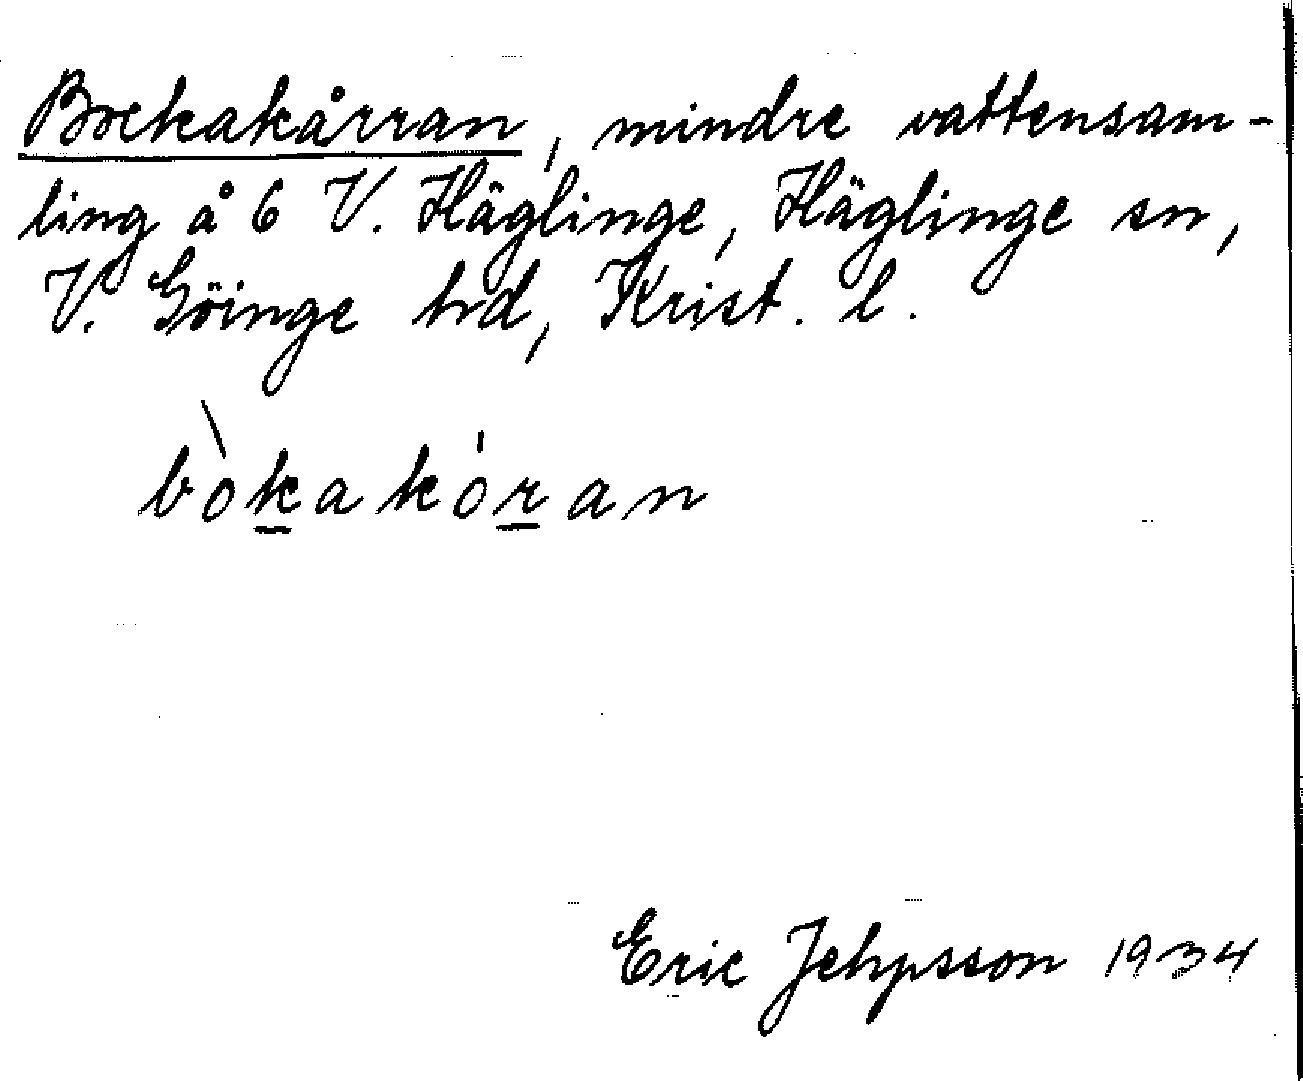 Bockakårran, mindre vattensam-
ling å 6 V. Häglinge, Häglinge sn,
V. Göinge hd, Krist. l.
bòkakóran
Eric Jehpsson 1934